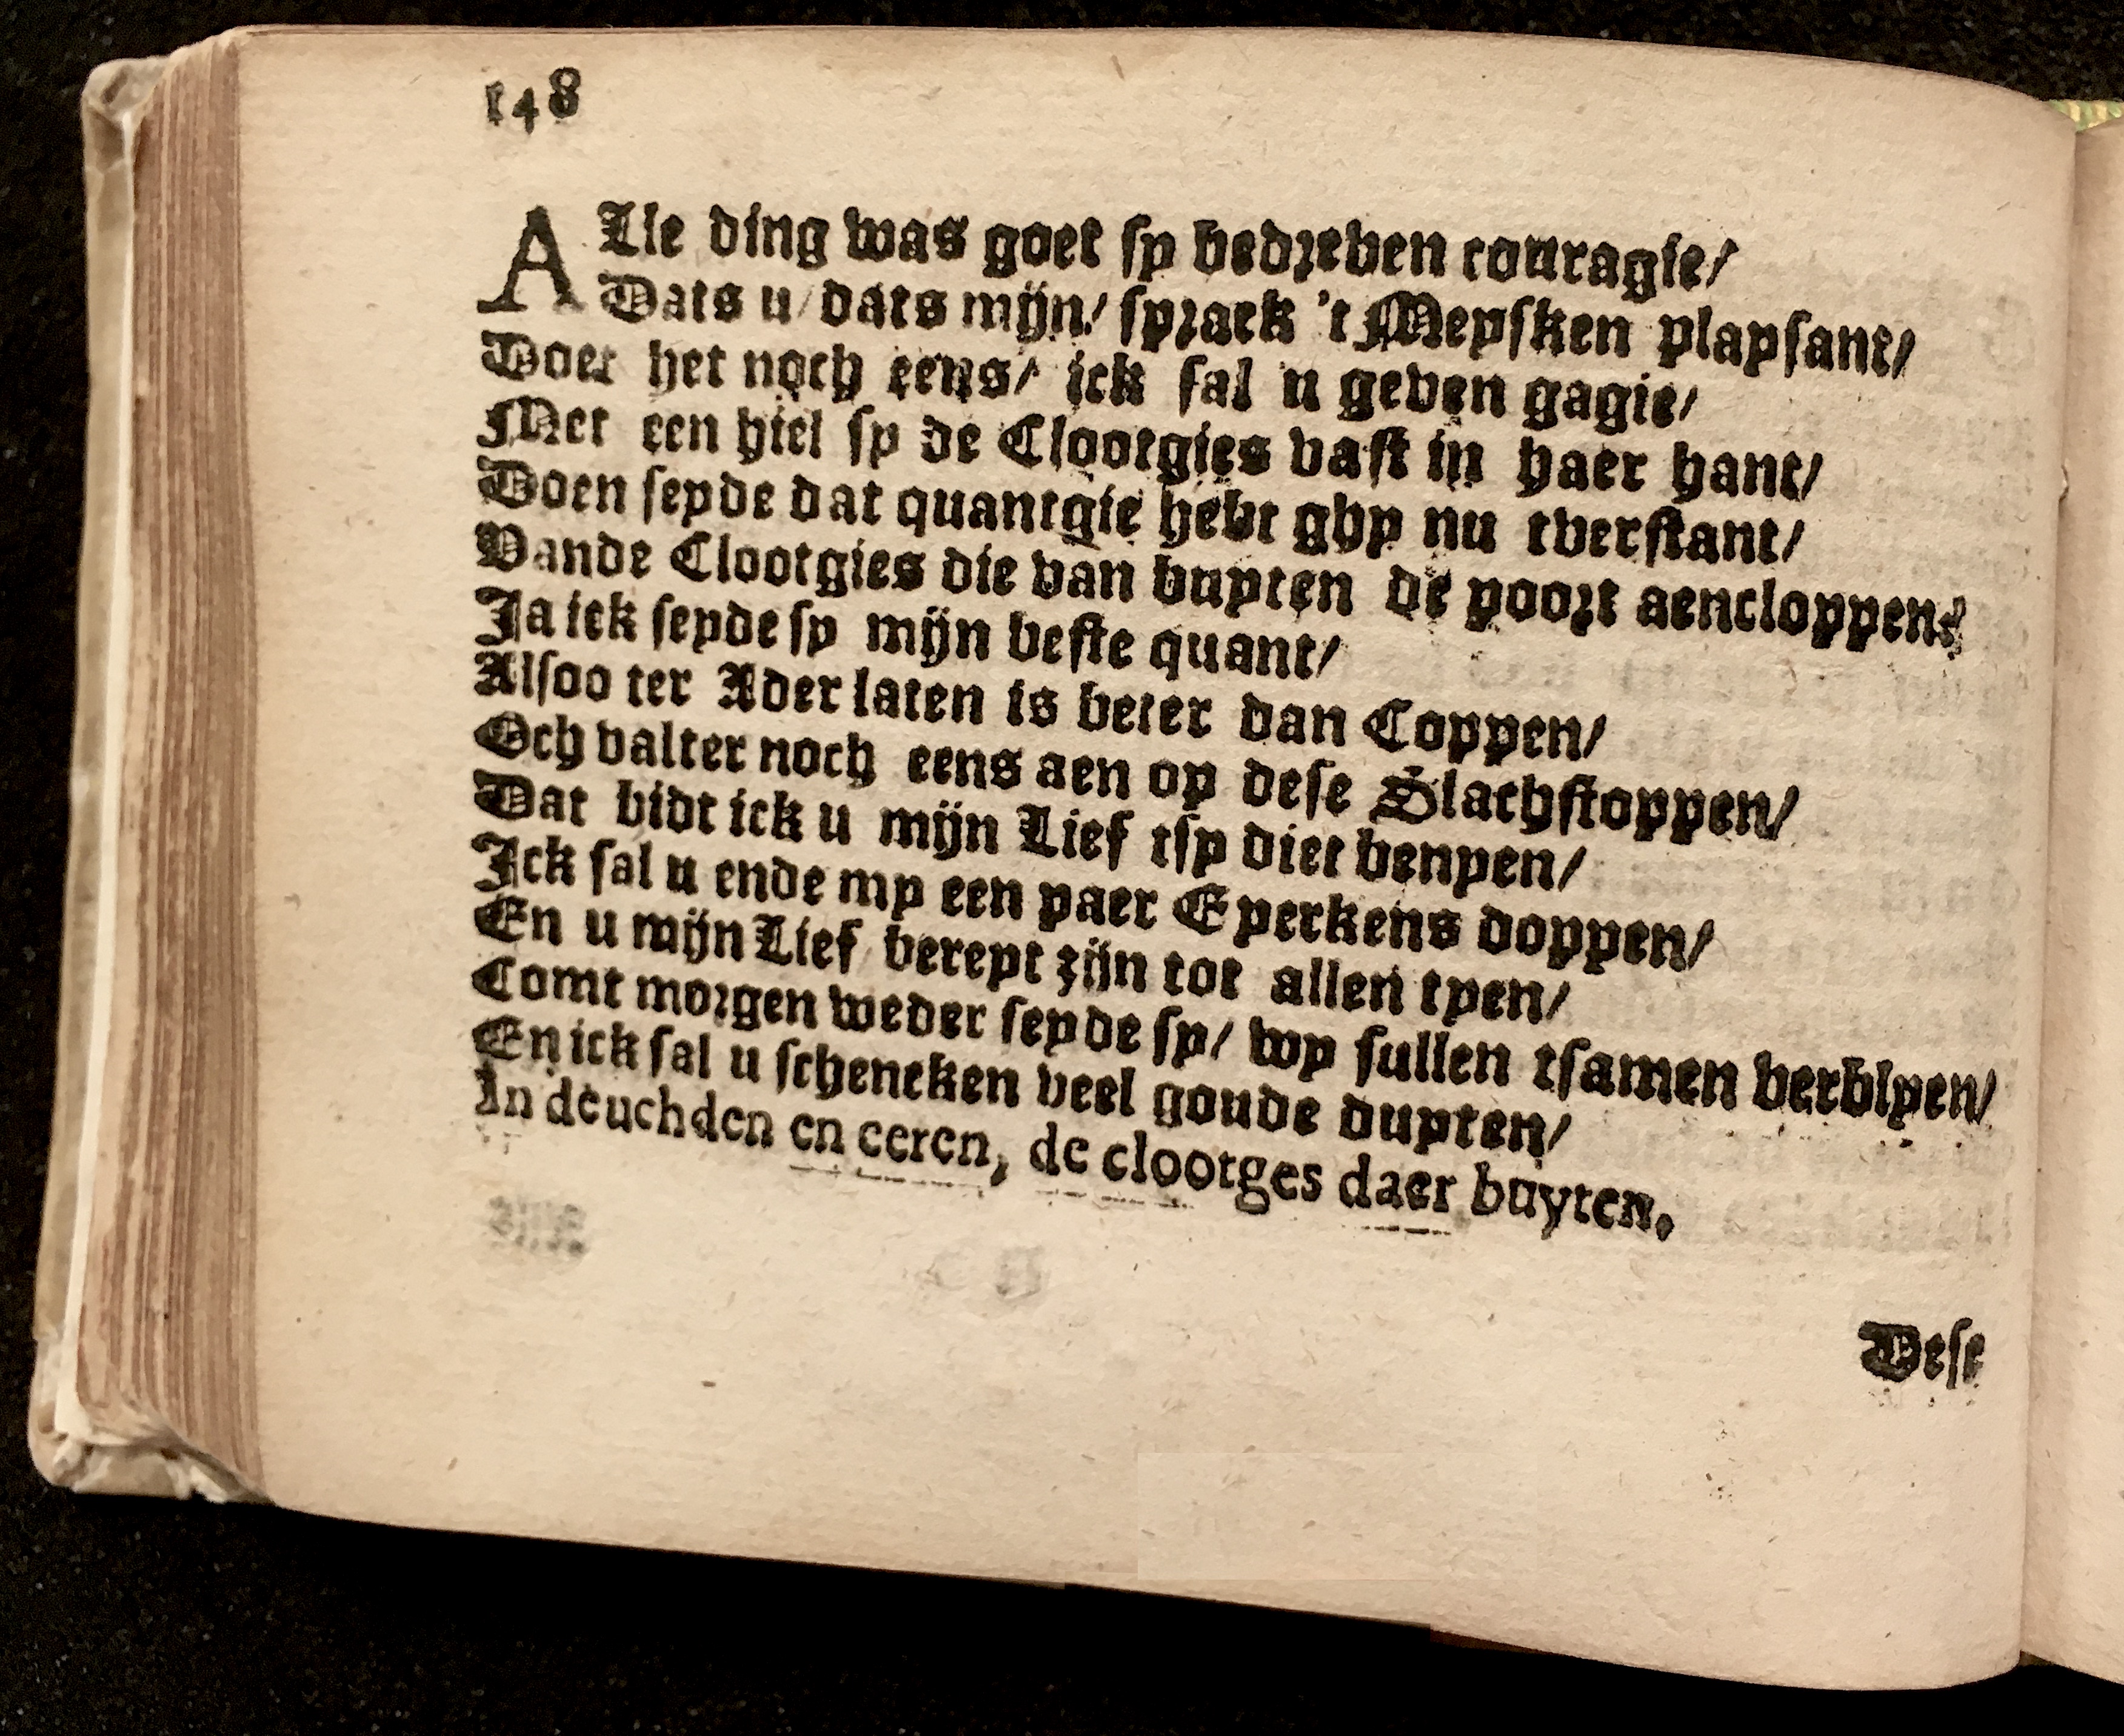 148
ALle ding was goet sy bedreven couragie/
Dats u/ dats mijn/ sprack 't Meysken playsant/
Doet het noch eens/ ick sal u geven gagie/
Met een hiel sy de Clootgies vast in haer hant/
Doen seyde dat quantgie hebt ghy nu tverstant/
Vande Clootgies die van buyten de poort aencloppen?
Ja ick seyde sy mijn beste quant/
Alsoo ter Ader laten is beter dan Coppen/
Och valter noch eens aen op dese Slachstoppen/
Dat bidt ick u mijn Lief tsy diet benyen/
Ick sal u ende my een paer Eyerkens doppen/
En u mijn Lief bereyt zijn tot allen tyen/
Comt morgen weder seyde sy/ wy sullen tsamen verblyen/
En ick sal u schencken veel goude duyten/
In deuchden en eeren, de clootges daer buyten.
Dese